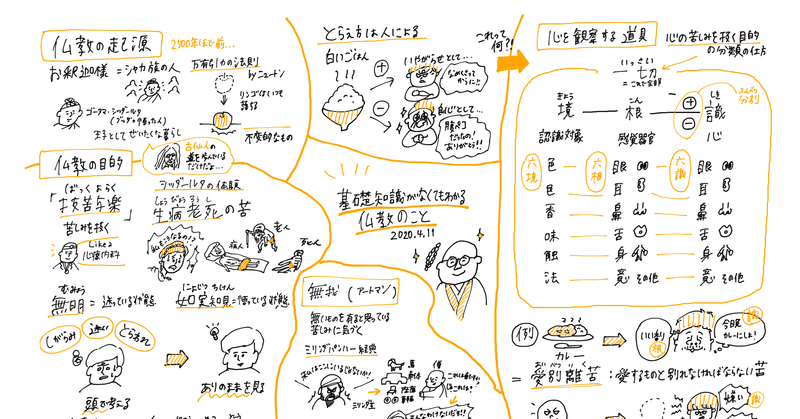 仏教の起源
2500年ほど前…
お釈迦様=シャカ族の人
ゴータマ・シッダールタ
王子としてぜいたくな暮らし
万有引力の法則
byニュートン
リンゴはいつも
落ちる
不変的なもの
古仏人の
道を歩んでいる
だけだよ…
仏教の目的
ばっくよらく
「抜苦与楽」
苦しみを抜く
Like a
心療内科
シッダールタの体験
しょうびょうろうし
生病老死の苦
老人
病人
死人
むみょう
無明=迷っている状態
にょじつちけん
如実知見=悟っている状態
しがらみ
迷い
とらわれ
頭で考える
ありのままを見る
とらえ方は人による
これって
何?!
白いごはん
いやがらせとして…
良心として…
腹ペコ
だったの!
ありがとう!!
基礎知識がなくてもわかる
仏教のこと
2020.4.11
無我(アートマン)
無いものを有ると思っている
苦しみに気づく
ミリンダパンハー経典
私はここにいるじゃないか!
ミリンダ王
僧
心を観察する道具
心の苦しみを抜く目的
の分類の仕方
いっさい
一切
=これで全部
きょう
境
こん
根
しき
識
ふんべつ
分別
認識対象
感覚器官
心
六境
六根
六識
色
眼
眼
耳
耳
香
鼻
鼻
味
舌
舌
触
身
身
法
意 その他
意 その他
例
カレー
いい香り
根
識
今晩
カレーにしよ!
あいべつりく
=愛別離苦:愛するものと別れなければならない苦
嫌い